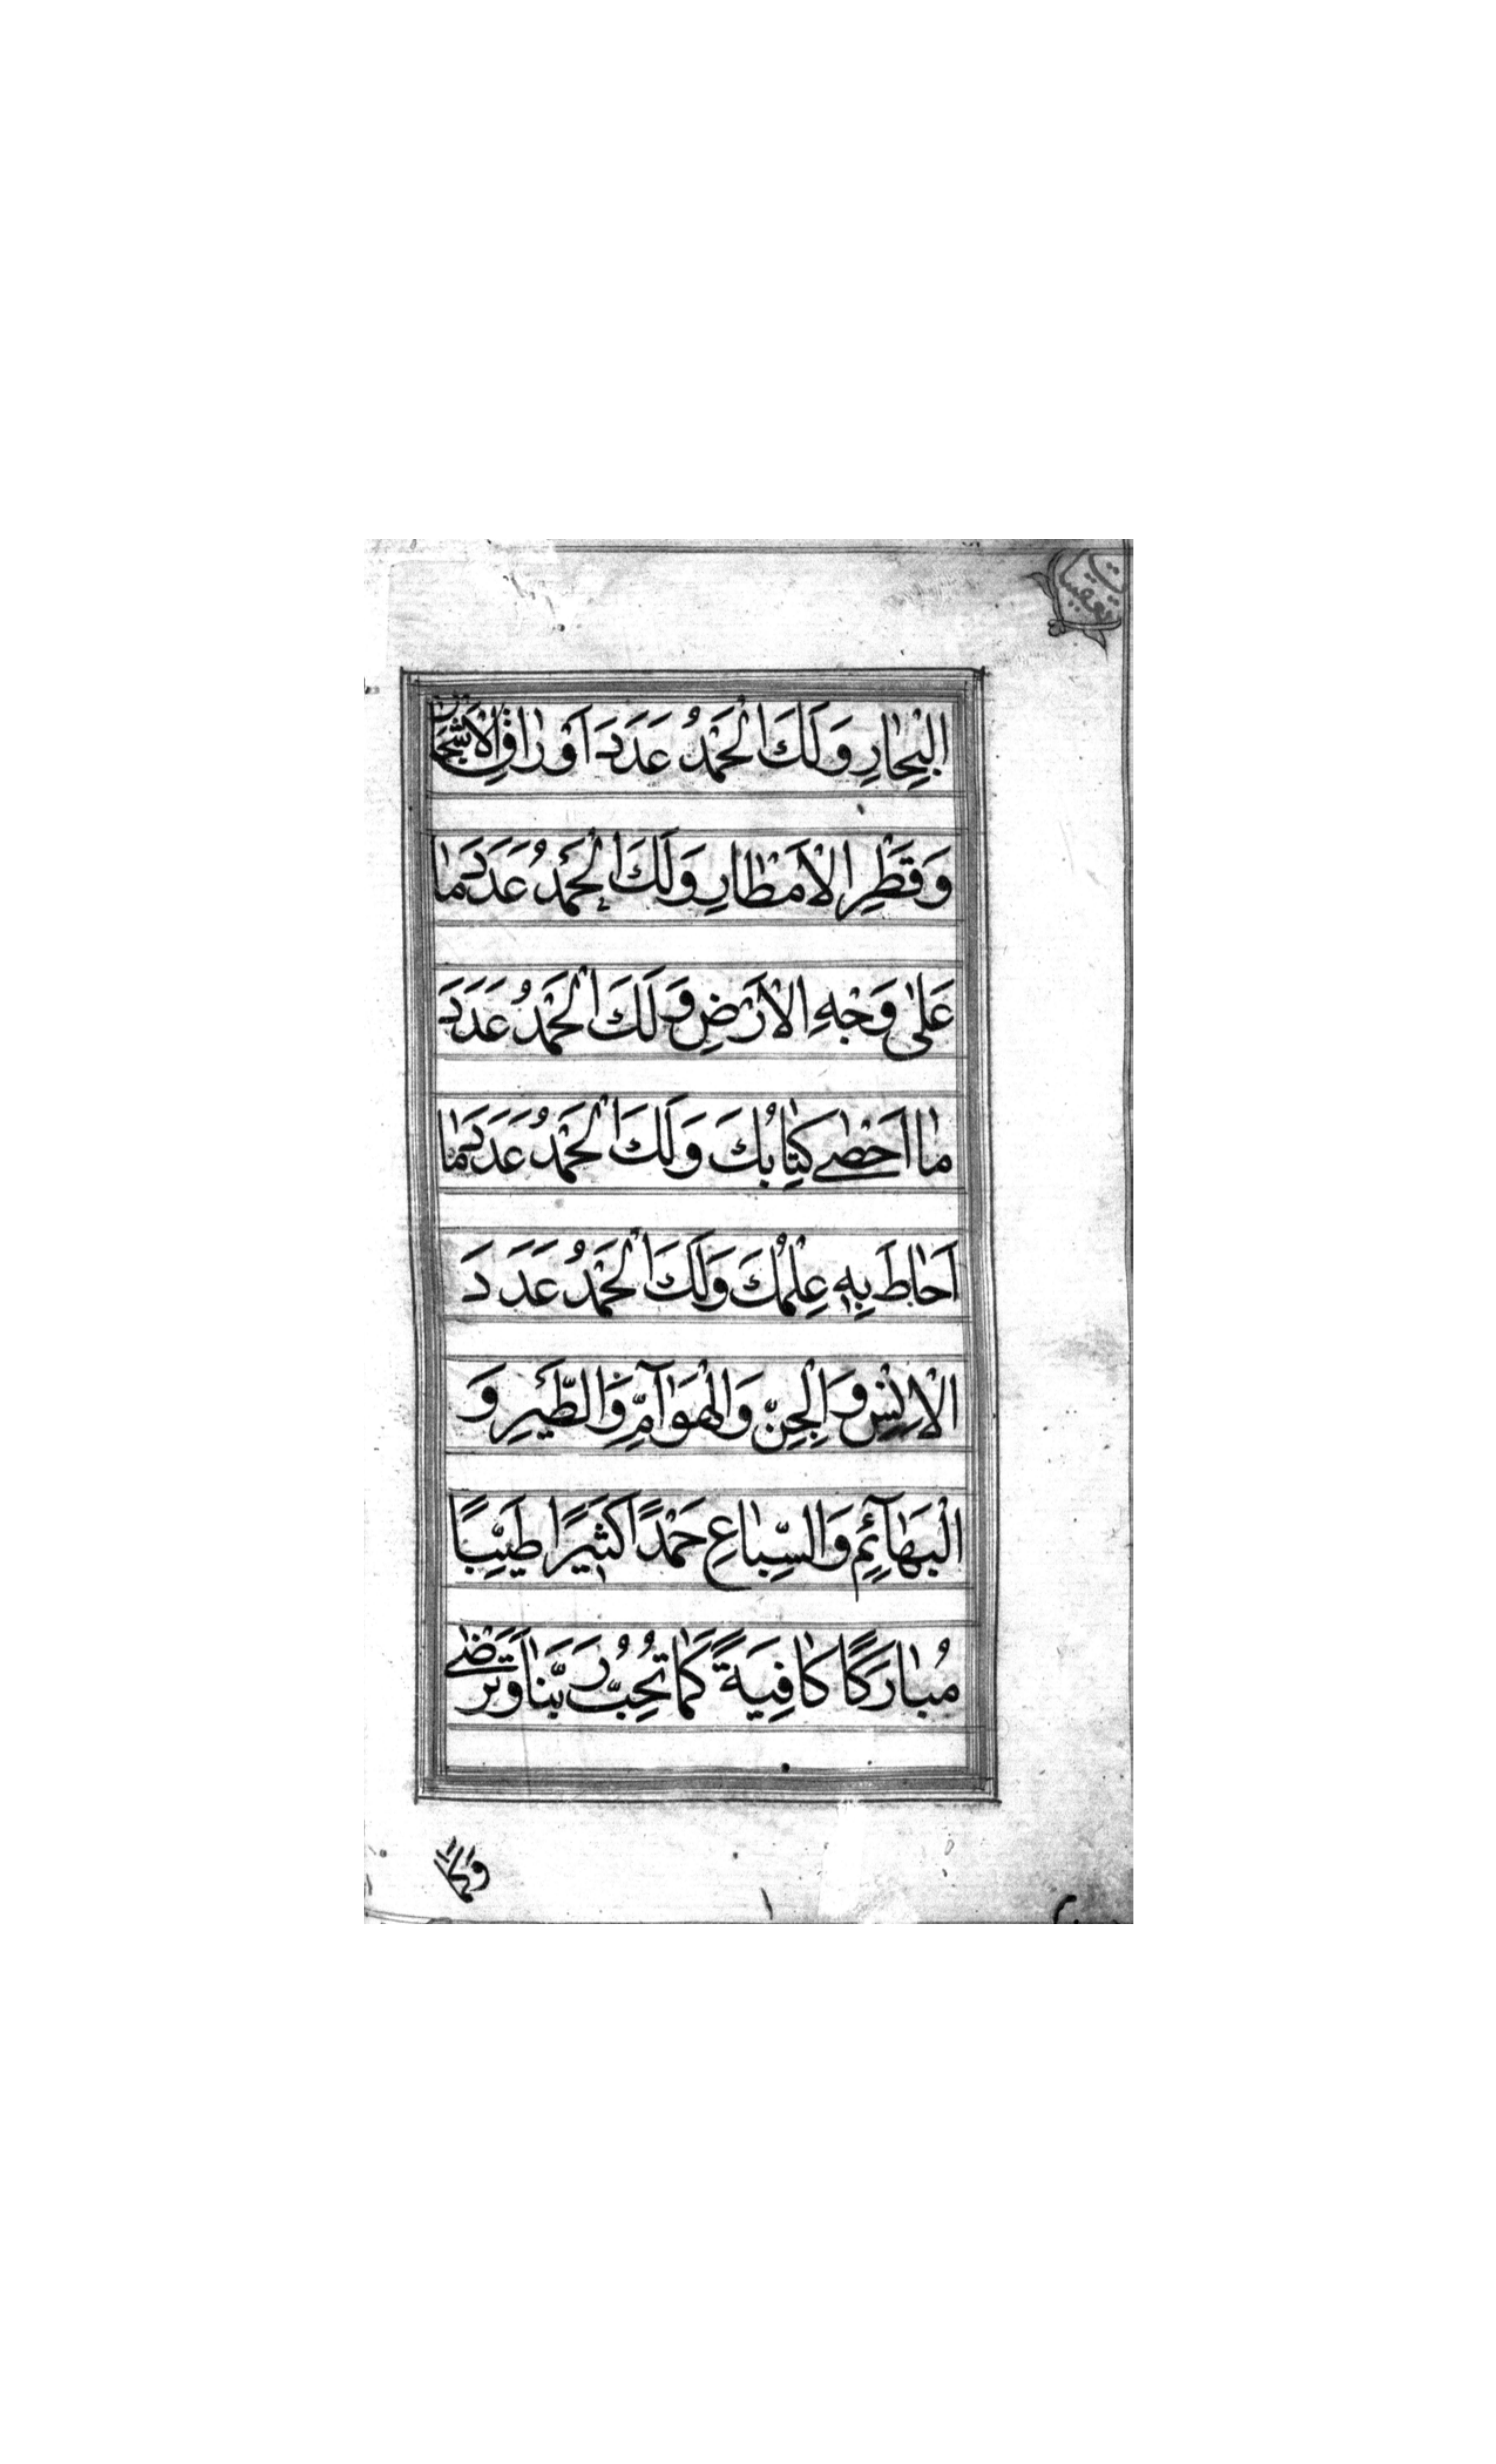 تعقیبات
البِحارِ وَلَكَ الْحَمْدُ عَدَدَ اَوْراقِ الْاَشْجارِ
وَقَطْرِ الْاَمْطارِ وَلَكَ الْحَمْدُ عَدَدَ ما
عَلٰى وَجْهِ الْاَرْضِ وَلَكَ الْحَمْدُ عَدَدَ
ما اَحْصٰى كِتابُكَ وَلَكَ الْحَمْدُ عَدَدَ ما
اَحاطَ بِهِ عِلْمُكَ وَلَكَ الْحَمْدُ عَدَدَ
الْاِنْسِ وَالْجِنِّ وَالْهَوَآمِّ وَالطَّيْرِ وَ
الْبَهآئِمِ وَالسِّباعِ حَمْدًا كَثيرًا طَيِّبًا
مُبارَكًا كافِيَةً كَما تُحِبُّ رَبَّنا وَتَرْضٰى
وَكَما